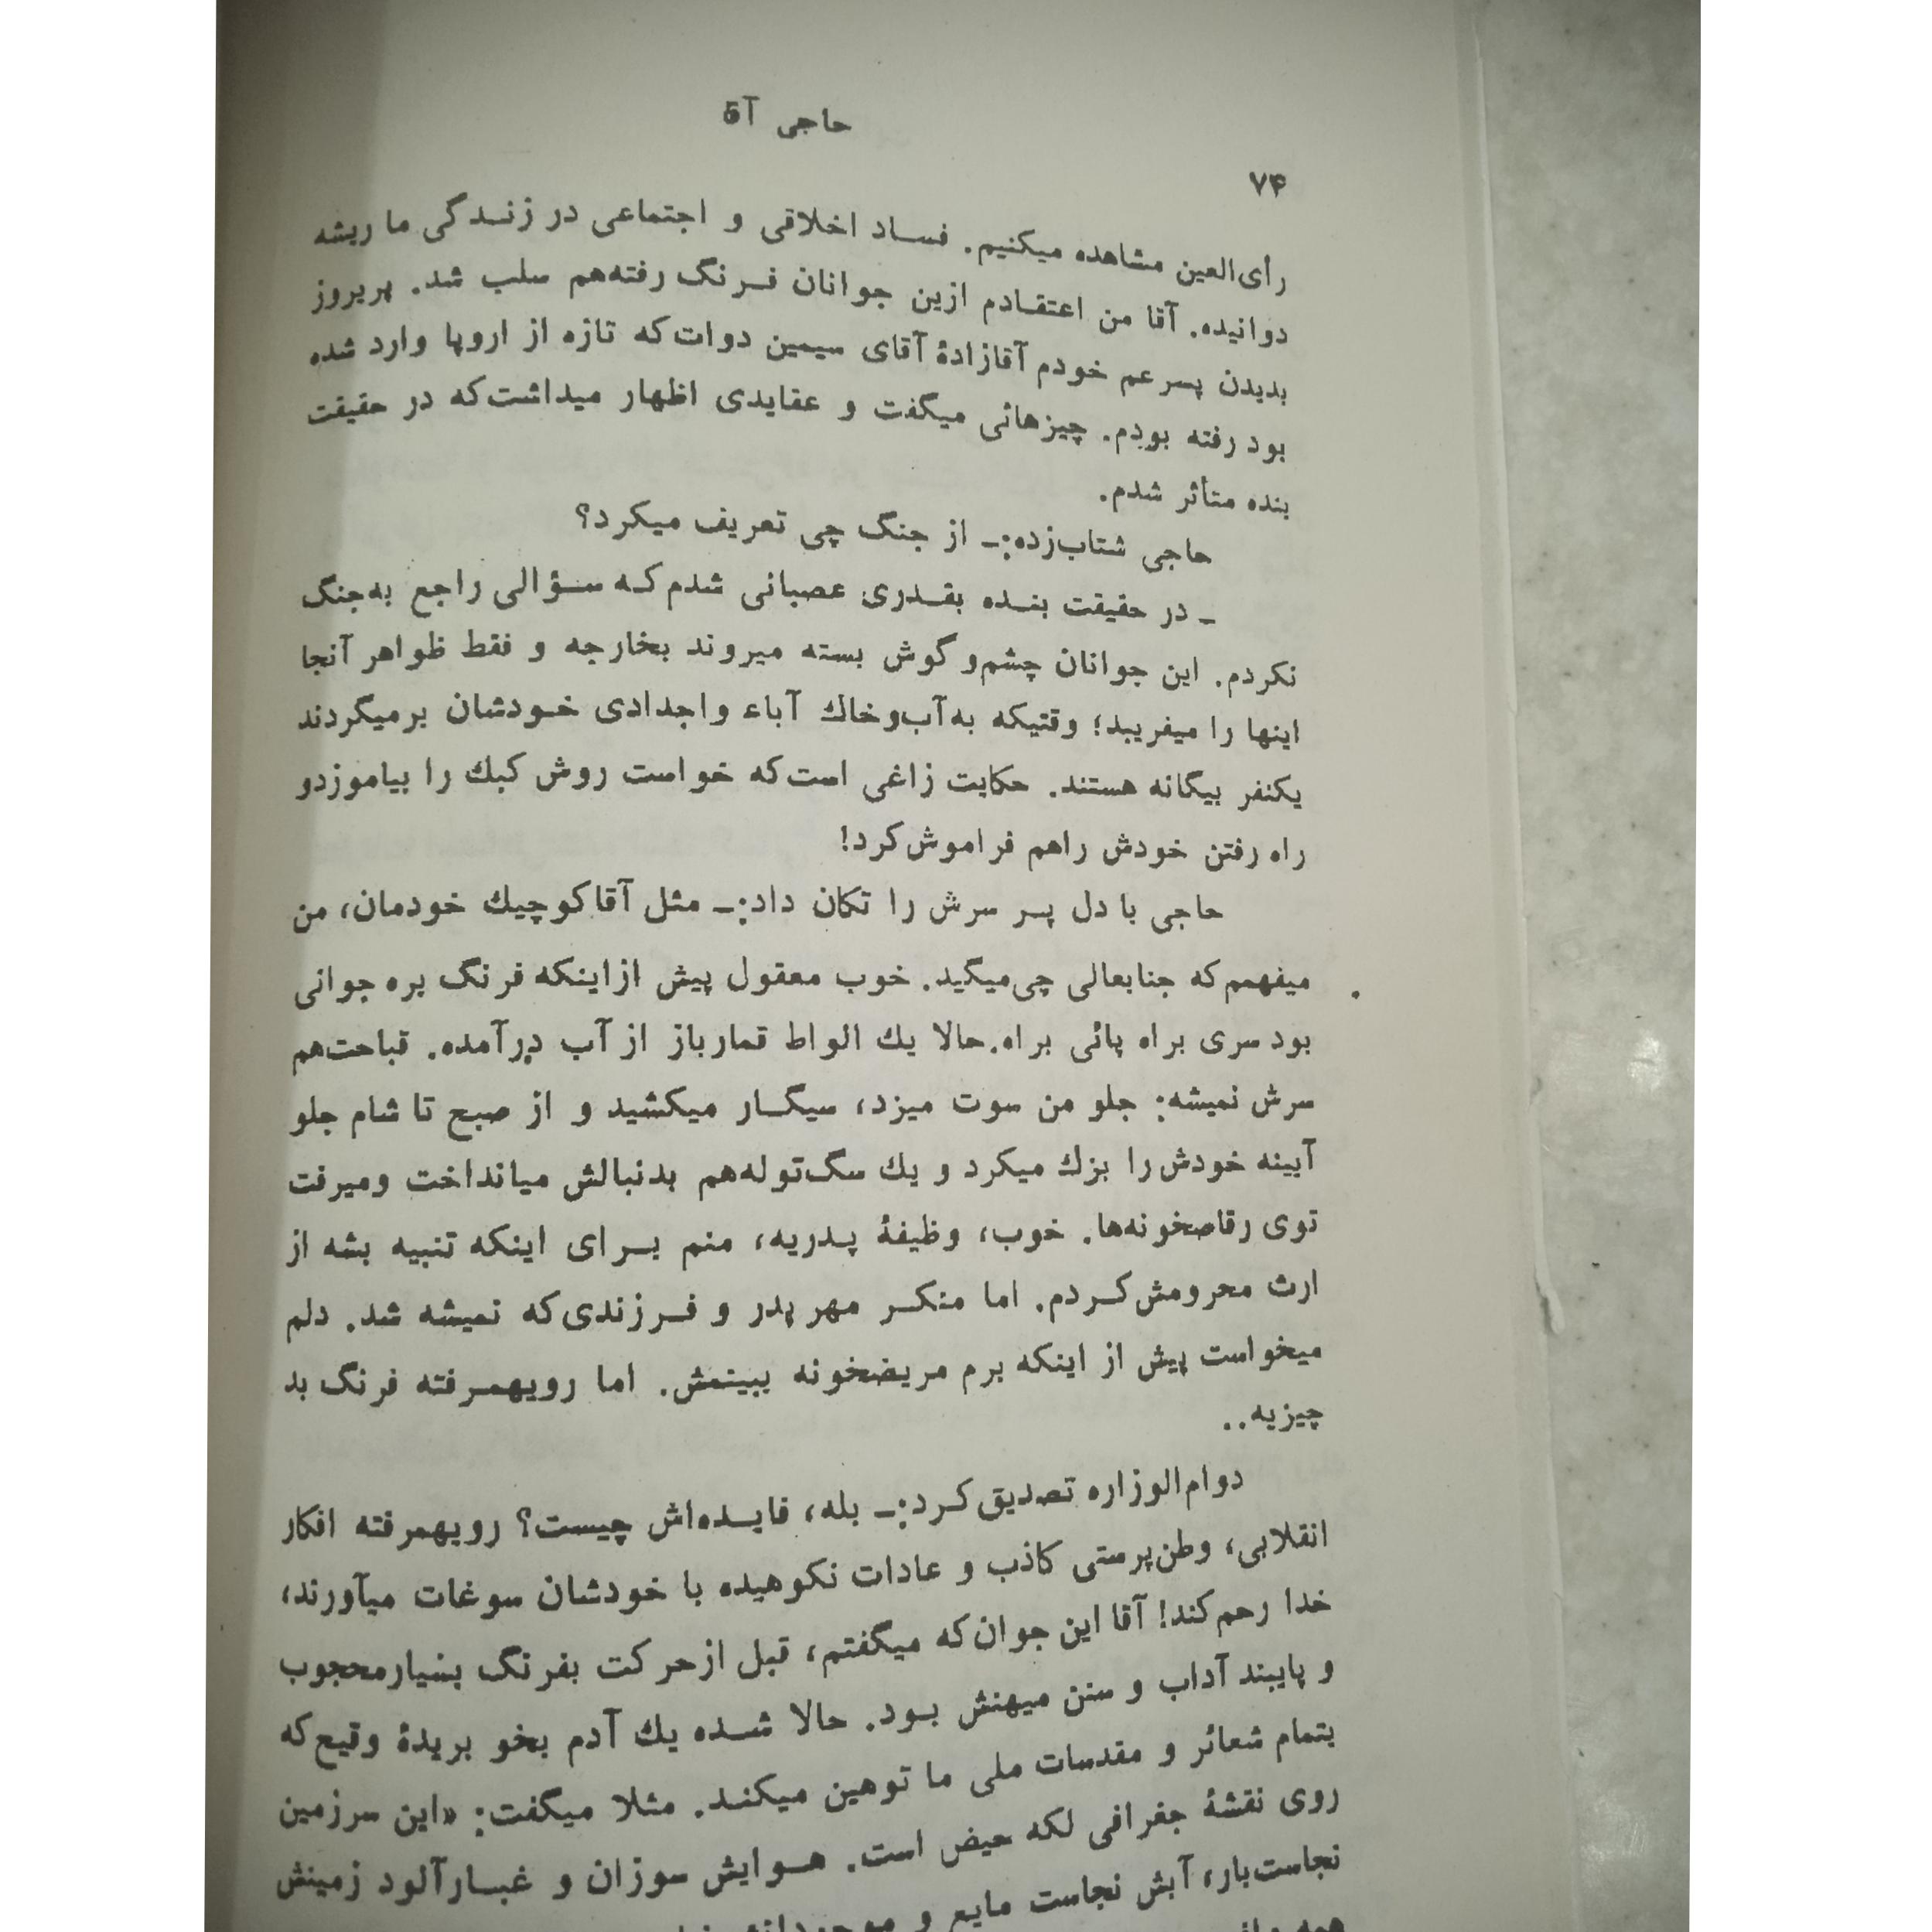 حاجی آقا
۷۴
رأی‌العین مشاهده میکنیم. فساد اخلاقی و اجتماعی در زندگی ما ریشه
دوانیده. آقا من اعتقادم ازین جوانان فرنگ رفته‌هم سلب شد. پریروز
بدیدن پسرعم خودم آقازادهٔ آقای سیمین دوات که تازه از اروپا وارد شده
بود رفته بودم. چیزهائی میگفت و عقایدی اظهار میداشت که در حقیقت
بنده متأثر شدم.
حاجی شتاب‌زده:ـ از جنگ چی تعریف میکرد؟
ـ در حقیقت بنده بقدری عصبانی شدم که سؤالی راجع به‌جنگ
نکردم. این جوانان چشم‌و گوش بسته میروند بخارجه و فقط ظواهر آنجا
اینها را میفریبد؛ وقتیکه به‌آب‌وخاك آباء واجدادی خودشان برمیگردند
یکنفر بیگانه هستند. حکایت زاغی است که خواست روش کبك را بیاموزدو
راه رفتن خودش راهم فراموش کرد!
حاجی با دل پر سرش را تکان داد:ـ مثل آقا کوچیك خودمان، من
میفهمم که جنابعالی چی‌میگید. خوب معقول پیش ازاینکه فرنگ بره جوانی
بود سری براه پائی براه.حالا یك الواط قمارباز از آب درآمده. قباحت‌هم
سرش نمیشه: جلو من سوت میزد، سیگار میکشید و از صبح تا شام جلو
آیینه خودش را بزك میکرد و یك سگ‌توله‌هم بدنبالش میانداخت ومیرفت
توی رقاصخونه‌ها. خوب، وظیفهٔ پدریه، منم برای اینکه تنبیه بشه از
ارث محرومش کردم. اما منکر مهر پدر و فرزندی که نمیشه شد. دلم
میخواست پیش از اینکه برم مریضخونه ببینمش. اما رویهمرفته فرنگ بد
چیزیه..
دوام‌الوزاره تصدیق کرد:ـ بله، فایده‌اش چیست؟ رویهمرفته افکار
انقلابی، وطن‌پرستی کاذب و عادات نکوهیده با خودشان سوغات میآورند،
خدا رحم کند! آقا این جوان که میگفتم، قبل ازحرکت بفرنگ بسیارمحجوب
و پایبند آداب و سنن میهنش بود. حالا شده یك آدم بخو بریدهٔ وقیع که
بتمام شعائر و مقدسات ملی ما توهین میکند. مثلا میگفت: «این سرزمین
روی نقشهٔ جغرافی لکه حیض است. هوایش سوزان و غبارآلود زمینش
نجاست‌بار، آبش نجاست مایع و